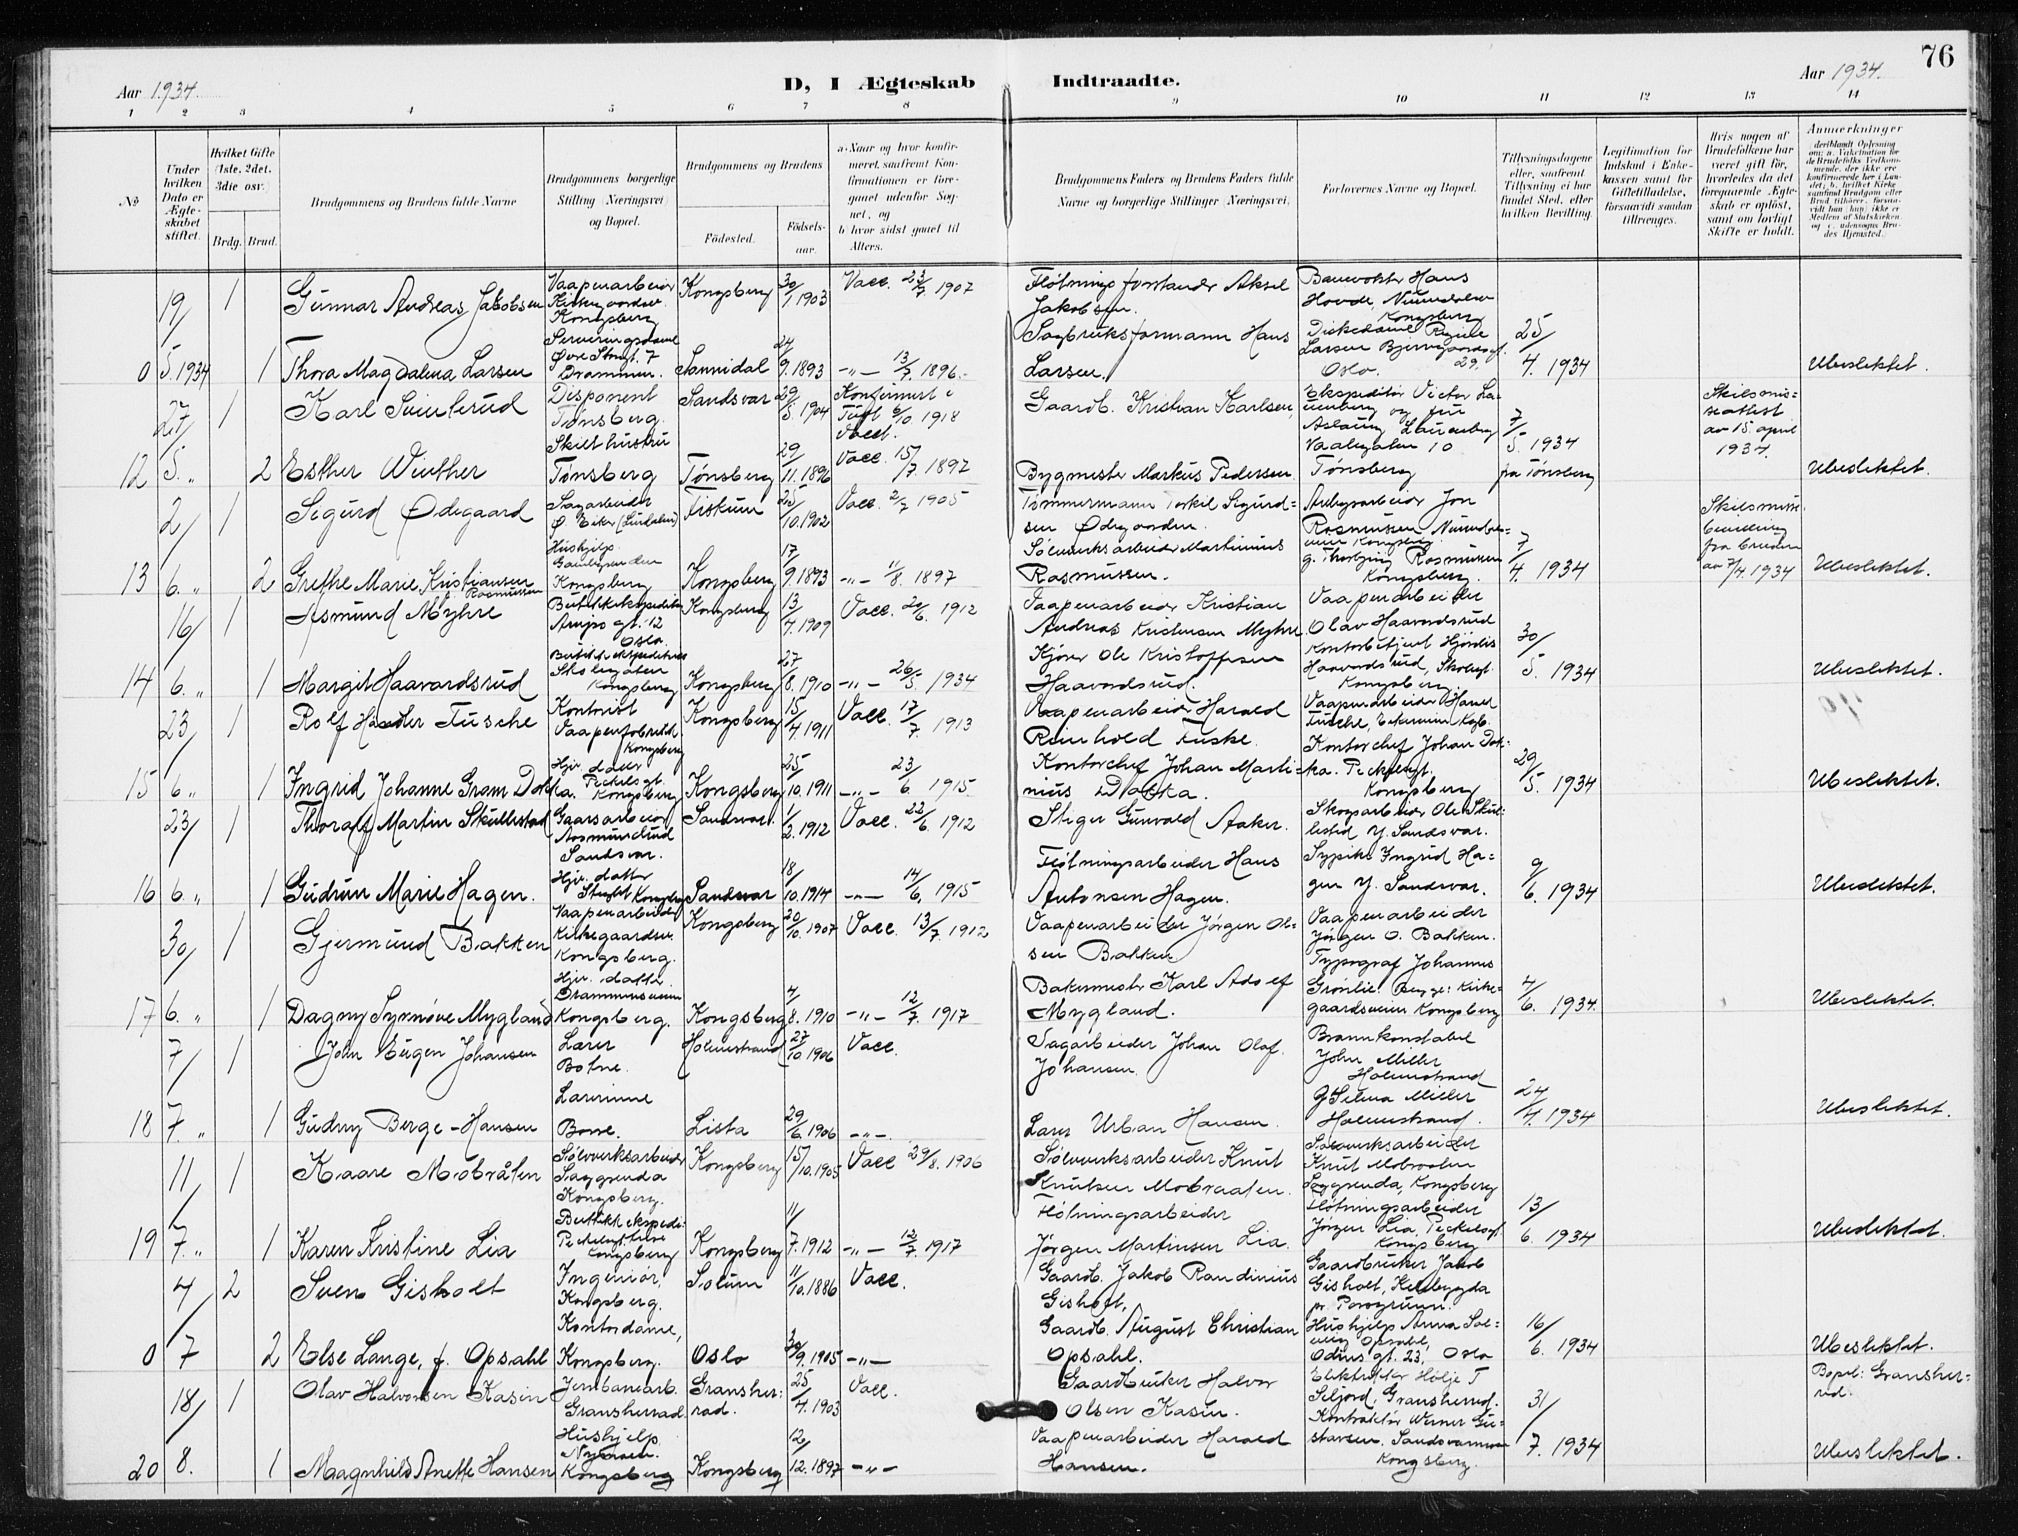 76
Aar 1934. D, I Ægteskab Indtraadte. Aar 1934.
1 2 3 4 5 6 7 8 9 10 11 12 13 14
No
Under hvilken Dato er Ægteskabet stiftet.
Hvilket Gifte (1ste, 2det, 3die osv.)
Brdg. Brud.
Brudgommens og Brudens fulde Navne
Brudgommens borgerlige Stilling (Næringsvei) og Bopæl.
Brudgommens og Brudens
Födested. Födsels-aar.
a. Naar og hvor konfirmeret, saafremt Konfirmationen er foregaaet udenfor Sognet, og b. hvor sidst gaaet til Alters.
Brudgommens Faders og Brudens Faders fulde Navne og borgerlige Stillinger (Næringsvei).
Forlovernes Navne og Bopæl.
Tillysningsdagene eller, saafremt Tillysning ei har fundet Sted, efter hvilken Bevilling.
Legitimation for Indskud i Enkekassen samt for Giftetilladelse, forsaavidt saadan tiltrænges.
Hvis nogen af Brudefolkene har været gift för, hvorledes da det foregaaende Ægteskab er oplöst, samt om lovligt Skifte er holdt.
Anmærkninger
19/ 1 Gunnar Andreas Jakobsen Vaapenarbeider Kirkegaardsv. Kongsberg Kongsberg 30/1 1903 Vacc. 23/7 1907 Fløtningsforstander Aksel Jakobsen. Banevokter Hans Hovde, Numedalsv. Kongsberg
0 5. 1934 1 Thora Magdalena Larsen Serveringsdame Øvre Storgt. 7 Drammen. Sannidal 24/9. 1893 -"- 13/7. 1896. Sagbruksformann Hans Larsen. Diskedame Larsen 29. Oslo. 25/4. 1934 Ubeslektet.
27/ 1 Karl Svinterud Disponent Tønsberg. Sandsvar 29/5 1904 Konfirmert i 6/10 1918 Vacc. Gaardb. Kristian Karlsen, Ekspeditør Victor Lauenberg og fru Aslaug Lauenberg 7/5 1934 Skilsmisseattest av 15 april 1934.
12 5. " 2 Esther Winther Skilt hustru Tønsberg Tønsberg 29/11. 1896 Vacc. 15/7. 1897 Bygmester Markus Pedersen Tønsberg fra Tønsberg Ubeslektet.
2/ 1 Sigurd Ødegaard Sagarbeider Ø. Eiker Fiskum 25/10. 1902 Vacc. 2/7 1905 Tømmermann Torkil Sigurdsen Ødegaarden. Anlegsarbeider Jon Rasmussen Kongsberg Skilsmisse bevilling fra bruden av 7/4. 1934
13 6. " 2 Grethe Marie Kristiansen Rasmussen Hushjelp Kongsberg Kongsberg 17/9. 1893 -"- 11/8. 1897 Sølvverksarbeider Martinius Rasmussen. Rasmussen Kongsberg. 7/4. 1934 Ubeslektet.
16/ 1 Asmund Myhre Butikkekspeditør gt. 12 Oslo. Kongsberg 13/4. 1909 Vacc. 20/6. 1912 Vaapenarbeider Kristian Andreas Kristensen Myhre Vaapenarbeider Olav Haavardsrud
14 6. " 1 Margit Haavardsrud Butikkekspeditrise Skolegaten Kongsberg Kongsberg 27/8. 1910 -"- 26/5. 1934 Kjører Ole Kristoffersen Haavardsrud. Kontorbetjent Hjørdis Haavardsrud, Skolegt. Kongsberg 30/5. 1934 Ubeslektet.
23/ 1 Rolf Tusche Kontorist Vaapenfabrikk Kongsberg Kongsberg 15/4. 1911 Vacc. 17/7. 1913 Vaapenarbeider Harald Reinhold Tuske. Vaapenarbeider Harald Tusche,
15 6. " 1 Ingrid Johanne Gram Dokka. Hjv. datter Peckelsgt. Kongsberg Kongsberg 25/10. 1911 -"- 23/6. 1915 Kontorchef Johan Martinius Dokka. Kontorchef Johan Dokka. Peckelsgt. Kongsberg 29/5. 1934 Ubeslektet.
23/ 1 Thoralf Martin Skullestad Gaarsarbeider Aasmundrud Sandsvar. Sandsvar. 1/2. 1912 Vacc. 22/6. 1912 Stiger Gunvald Aaker. Skogsarbeider Ole Skullestad Y. Sandsvar.
16 6 " 1 Gudrun Marie Hagen. Hjv. datter Kongsberg Sandsvar 18/10. 1914 -"- 14/6. 1915 Fløtningsarbeider Hans Antonsen Hagen. Sypike Ingrid Hagen Y. Sandsvar. 9/6. 1934 Ubeslektet.
30/ 1 Gjermund Bakken Vaapenarbeider Kirkegaardsv. Kongsberg. Kongsberg 20/10. 1907 Vacc. 13/7. 1912 Vaapenarbeider Jørgen Olsen Bakken Vaapenarbeider Jørgen O. Bakken.
17 6. " 1 Dagny Synnøve Mygland Hjv. datter Drammensveien Kongsberg. Kongsberg 4/8. 1910 -"- 12/7. 1917 Bakermester Karl Adolf Mygland. Typograf Johannes Grønlie. Begge: Kirkegaardsveien Kongsberg 4/6. 1934. Ubeslektet.
7/ 1 John Eugen Johansen Lærer Botne. Holmestrand 27/10. 1906 Vacc. Sagarbeider Johan Olaf Johansen. Brannkonstabel John Miller Holmestrand
18 7. " 1 Gudny Berge-Hansen Lærerinne Borre. Lista 29/6. 1906 -"- Lærer Urban Hansen. Selma Miller Holmestrand. 24/4. 1934 Ubeslektet.
11/ 1 Kaare Mobråten Sølvverksarbeider Saggrenda Kongsberg. Kongsberg 15/10. 1905 Vacc 29/8. 1906 Sølvverksarbeider Knut Knutsen Mobraaten. Sølvverksarbeider Knut Mobraaten Saggrenda, Kongsberg
19 7. " 1 Karen Kristine Lia Butikkekspeditrise Kongsberg Kongsberg 11/7. 1912 -"- 12/7. 1917 Fløtningsarbeider Jørgen Martinsen Lia. Fløtningsarbeider Jørgen Lia, Peckelsgt. Kongsberg 13/6. 1934 Ubeslektet.
4/ 2 Sven Gisholt Ingeniør, Kongsberg. Solum 11/10. 1886 Vacc. Gaardb. Jakob Randinius Gisholt, Gaardbruker Jacob Gisholt, Kilebygda pr. Porsgrunn.
0 7 2 Else Lange, f. Opsahl Kontordame, Kongsberg. Oslo 30/9. 1905 -"- Gaardb. August Christian Opsahl. Hushjelp Anna Solveig Opsahl, Odins gt. 23, Oslo 16/6. 1934 Ubeslektet.
18/ 1 Olav Halvorsen Kasin Jernbanearb. Gransherrad. Gransherrad. 25/4. 1903 Vacc. Gaardbruker Halvor Olsen Kasin. Elektriker Hølje T Seljord, Gransherred. Bopel: Gransherred.
20 8. 1 Magnhild Anette Hansen Hushjelp Nymoen. Kongsberg Kongsberg 12/12. 1897 -"- Vaapenarbeider Harald Hansen. Kontraktør Werner Gustavsen. Sandsværveien Kongsberg. 31/7. 1934 Ubeslektet.